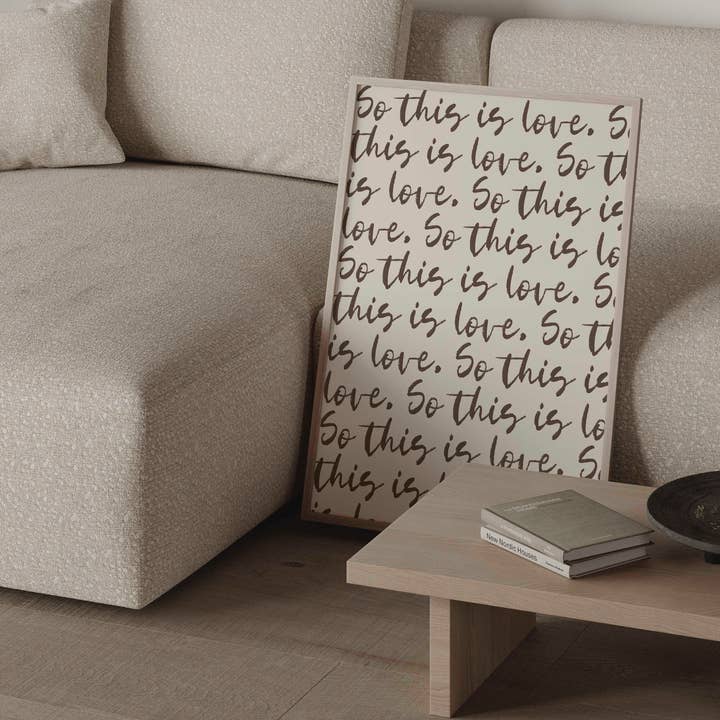 So this is love. S
this is love. So th
is love. So this is
love. So this is lo
So this is love. S
this is love. So th
is love. So this is
love. So this is lo
So this is love. S
this is l
is l
New Nordic Houses